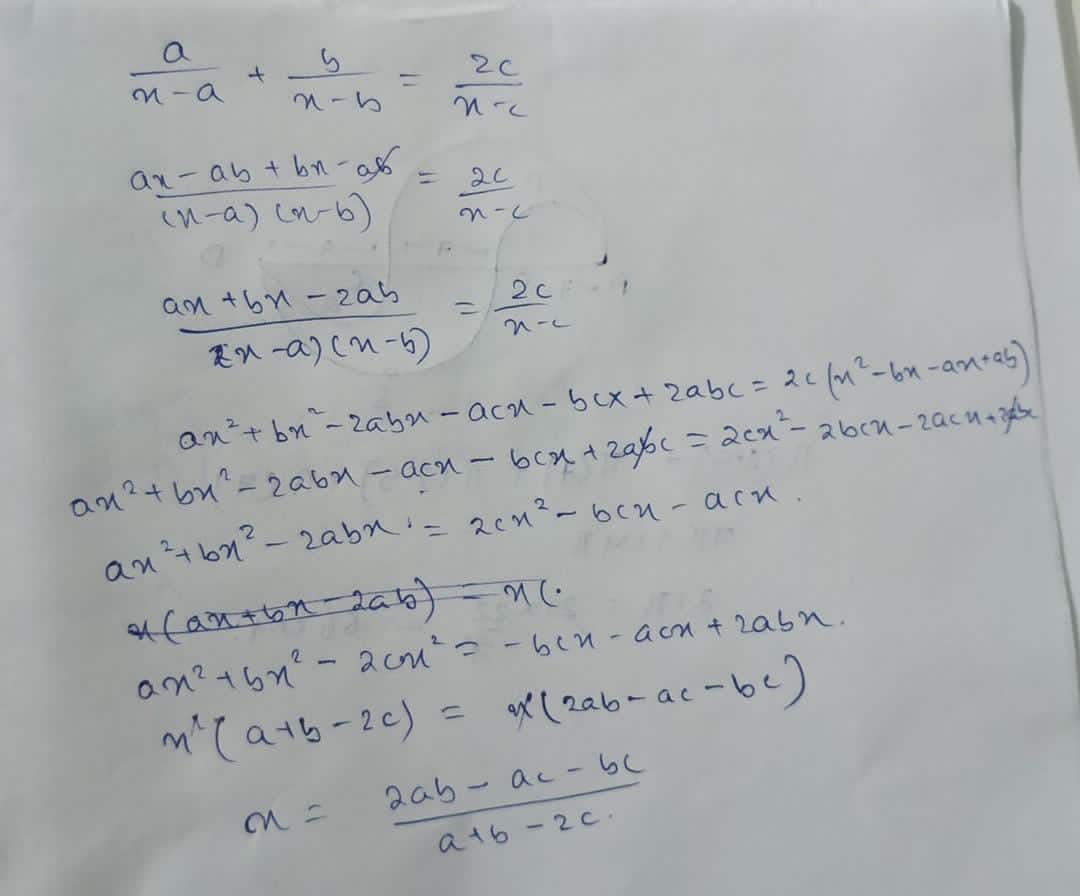 a/(x-a) + b/(x-b) = 2c/(x-c)
ax - ab + bx - ab/(x-a)(x-b) = 2c/(x-c)
ax + bx - 2ab/(x-a)(x-b) = 2c/(x-c)
ax² + bx² - 2abx - acx - bcx + 2abc = 2c(x² - bx - ax + ab)
ax² + bx² - 2abx - acx - bcx + 2abc = 2cx² - 2bcx - 2acx + 2abc
ax² + bx² - 2abx = 2cx² - bcx - acx.
x(ax + bx - 2ab) = x(.
ax² + bx² - 2cx² = -bcx - acx + 2abx.
x²(a+b-2c) = x(2ab - ac - bc)
x = 2ab - ac - bc/a+b-2c.